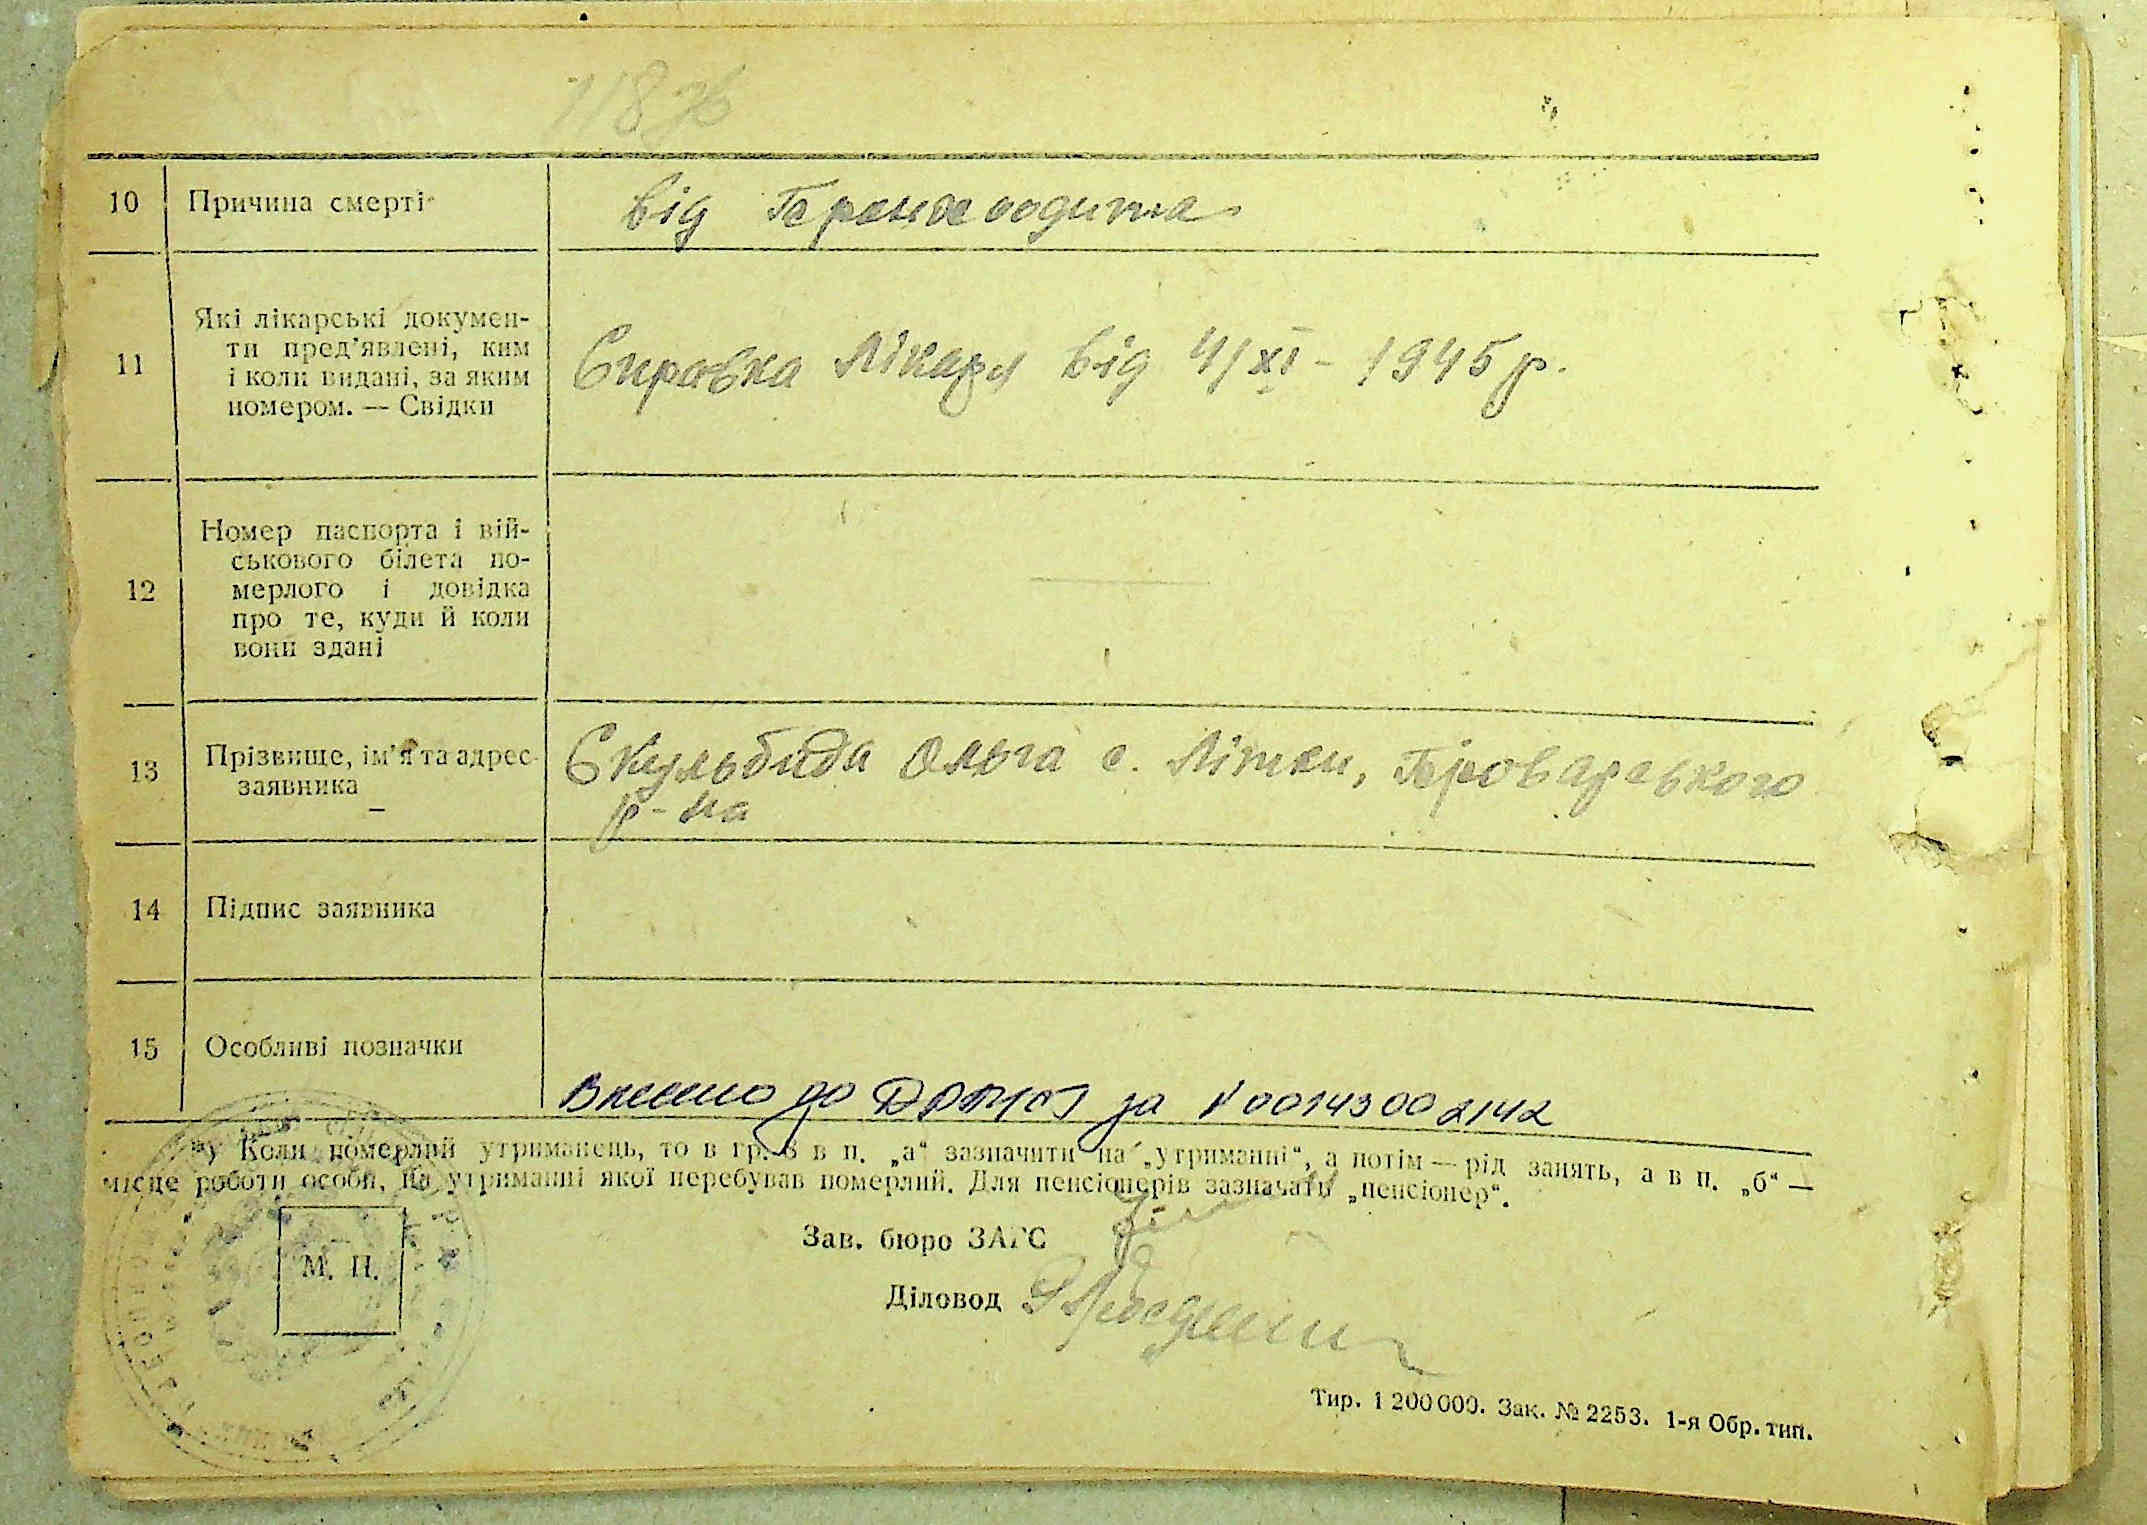 118
10 Причина смерті від Бронхеодита
11 Які лікарські докумен-
ти пред'явлені, ким
і коли видані, за яким
номером. — Свідки
Справка лікаря від 4/XI - 1945 р.
12 Номер паспорта і вій-
ськового білета по-
мерлого і довідка
про те, куди й коли
вони здані
13 Прізвище, ім'я та адрес
заявника
Скульбида Ольга с. Літки, Броварського
р-на
14 Підпис заявника
15 Особливі позначки
Внесено до ДРАЦСГ за №00143002142
*) Коли померлий утриманець, то в гр. 8 в п. „а“ зазначити на „утриманні“, а потім — рід занять, а в п. „б“ —
місце роботи особи, на утриманні якої перебував померлий. Для пенсіонерів зазначати „пенсіонер“.
Зав. бюро ЗАГС
М. П.
Діловод
Тир. 1 200 000. Зак. № 2253. 1-я Обр. тип.